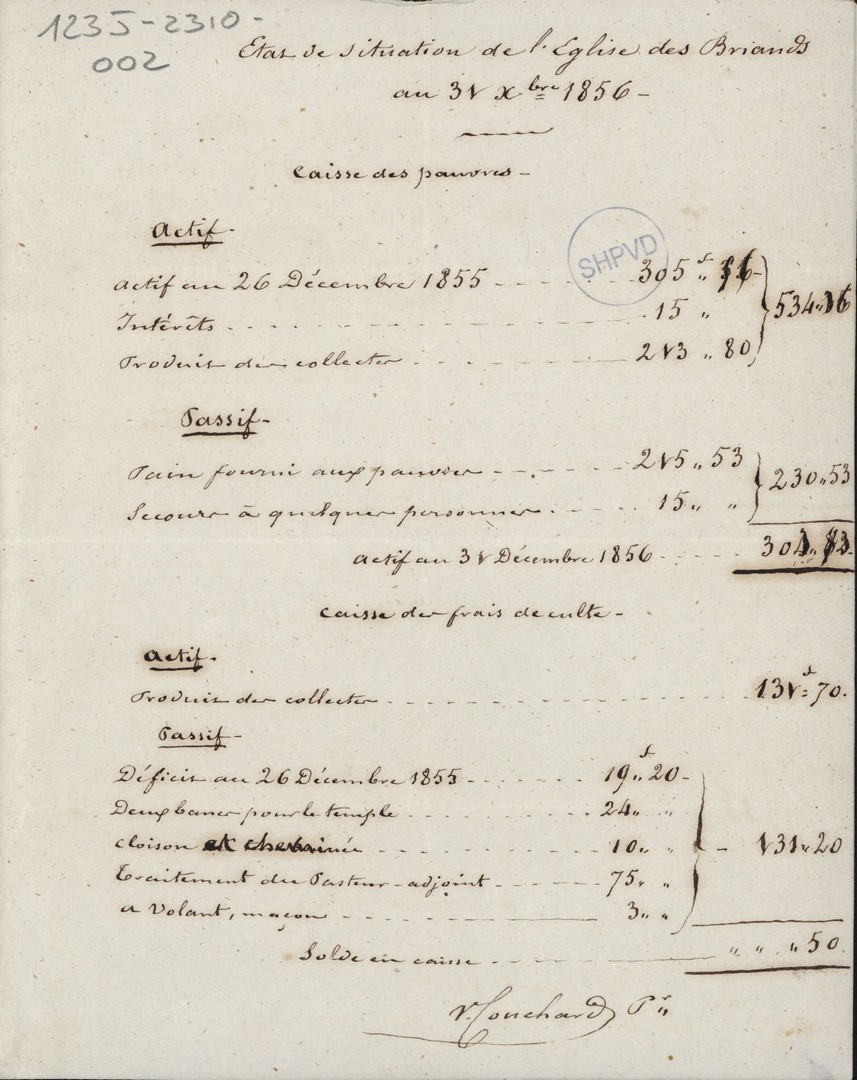 123J-2310-
002
Etat de situation de l'Eglise des Briands
au 31 Xbre 1856 -
Caisse des pauvres -
Actif -
SHPVD
Actif au 26 Décembre 1855 - - - - - 305 f " 36
Intérêts - - - - - 15 "
534 " 16
Produit des collectes - - - - - 213 " 80
Passif -
Pain fourni aux pauvres - - - - - 215 " 53
230 " 53
Secours à quelques personnes - - - - - 15 " "
Actif au 31 Décembre 1856 - - - - - 303 " 63
Caisse des frais de culte -
Actif -
Produit des collectes - - - - - 131 f = 70.
Passif -
Déficit au 26 Décembre 1855 - - - - - 19 f " 20 -
Deux bancs pour le temple - - - - - 24 " "
cloison et cheminée - - - - - 10 " " - 131 " 20
Traitement du Pasteur-adjoint - - - - - 75 " "
a Volant, maçon - - - - - 3 " "
Solde en caisse - - - - - " " " 50
V. Couchard Pr